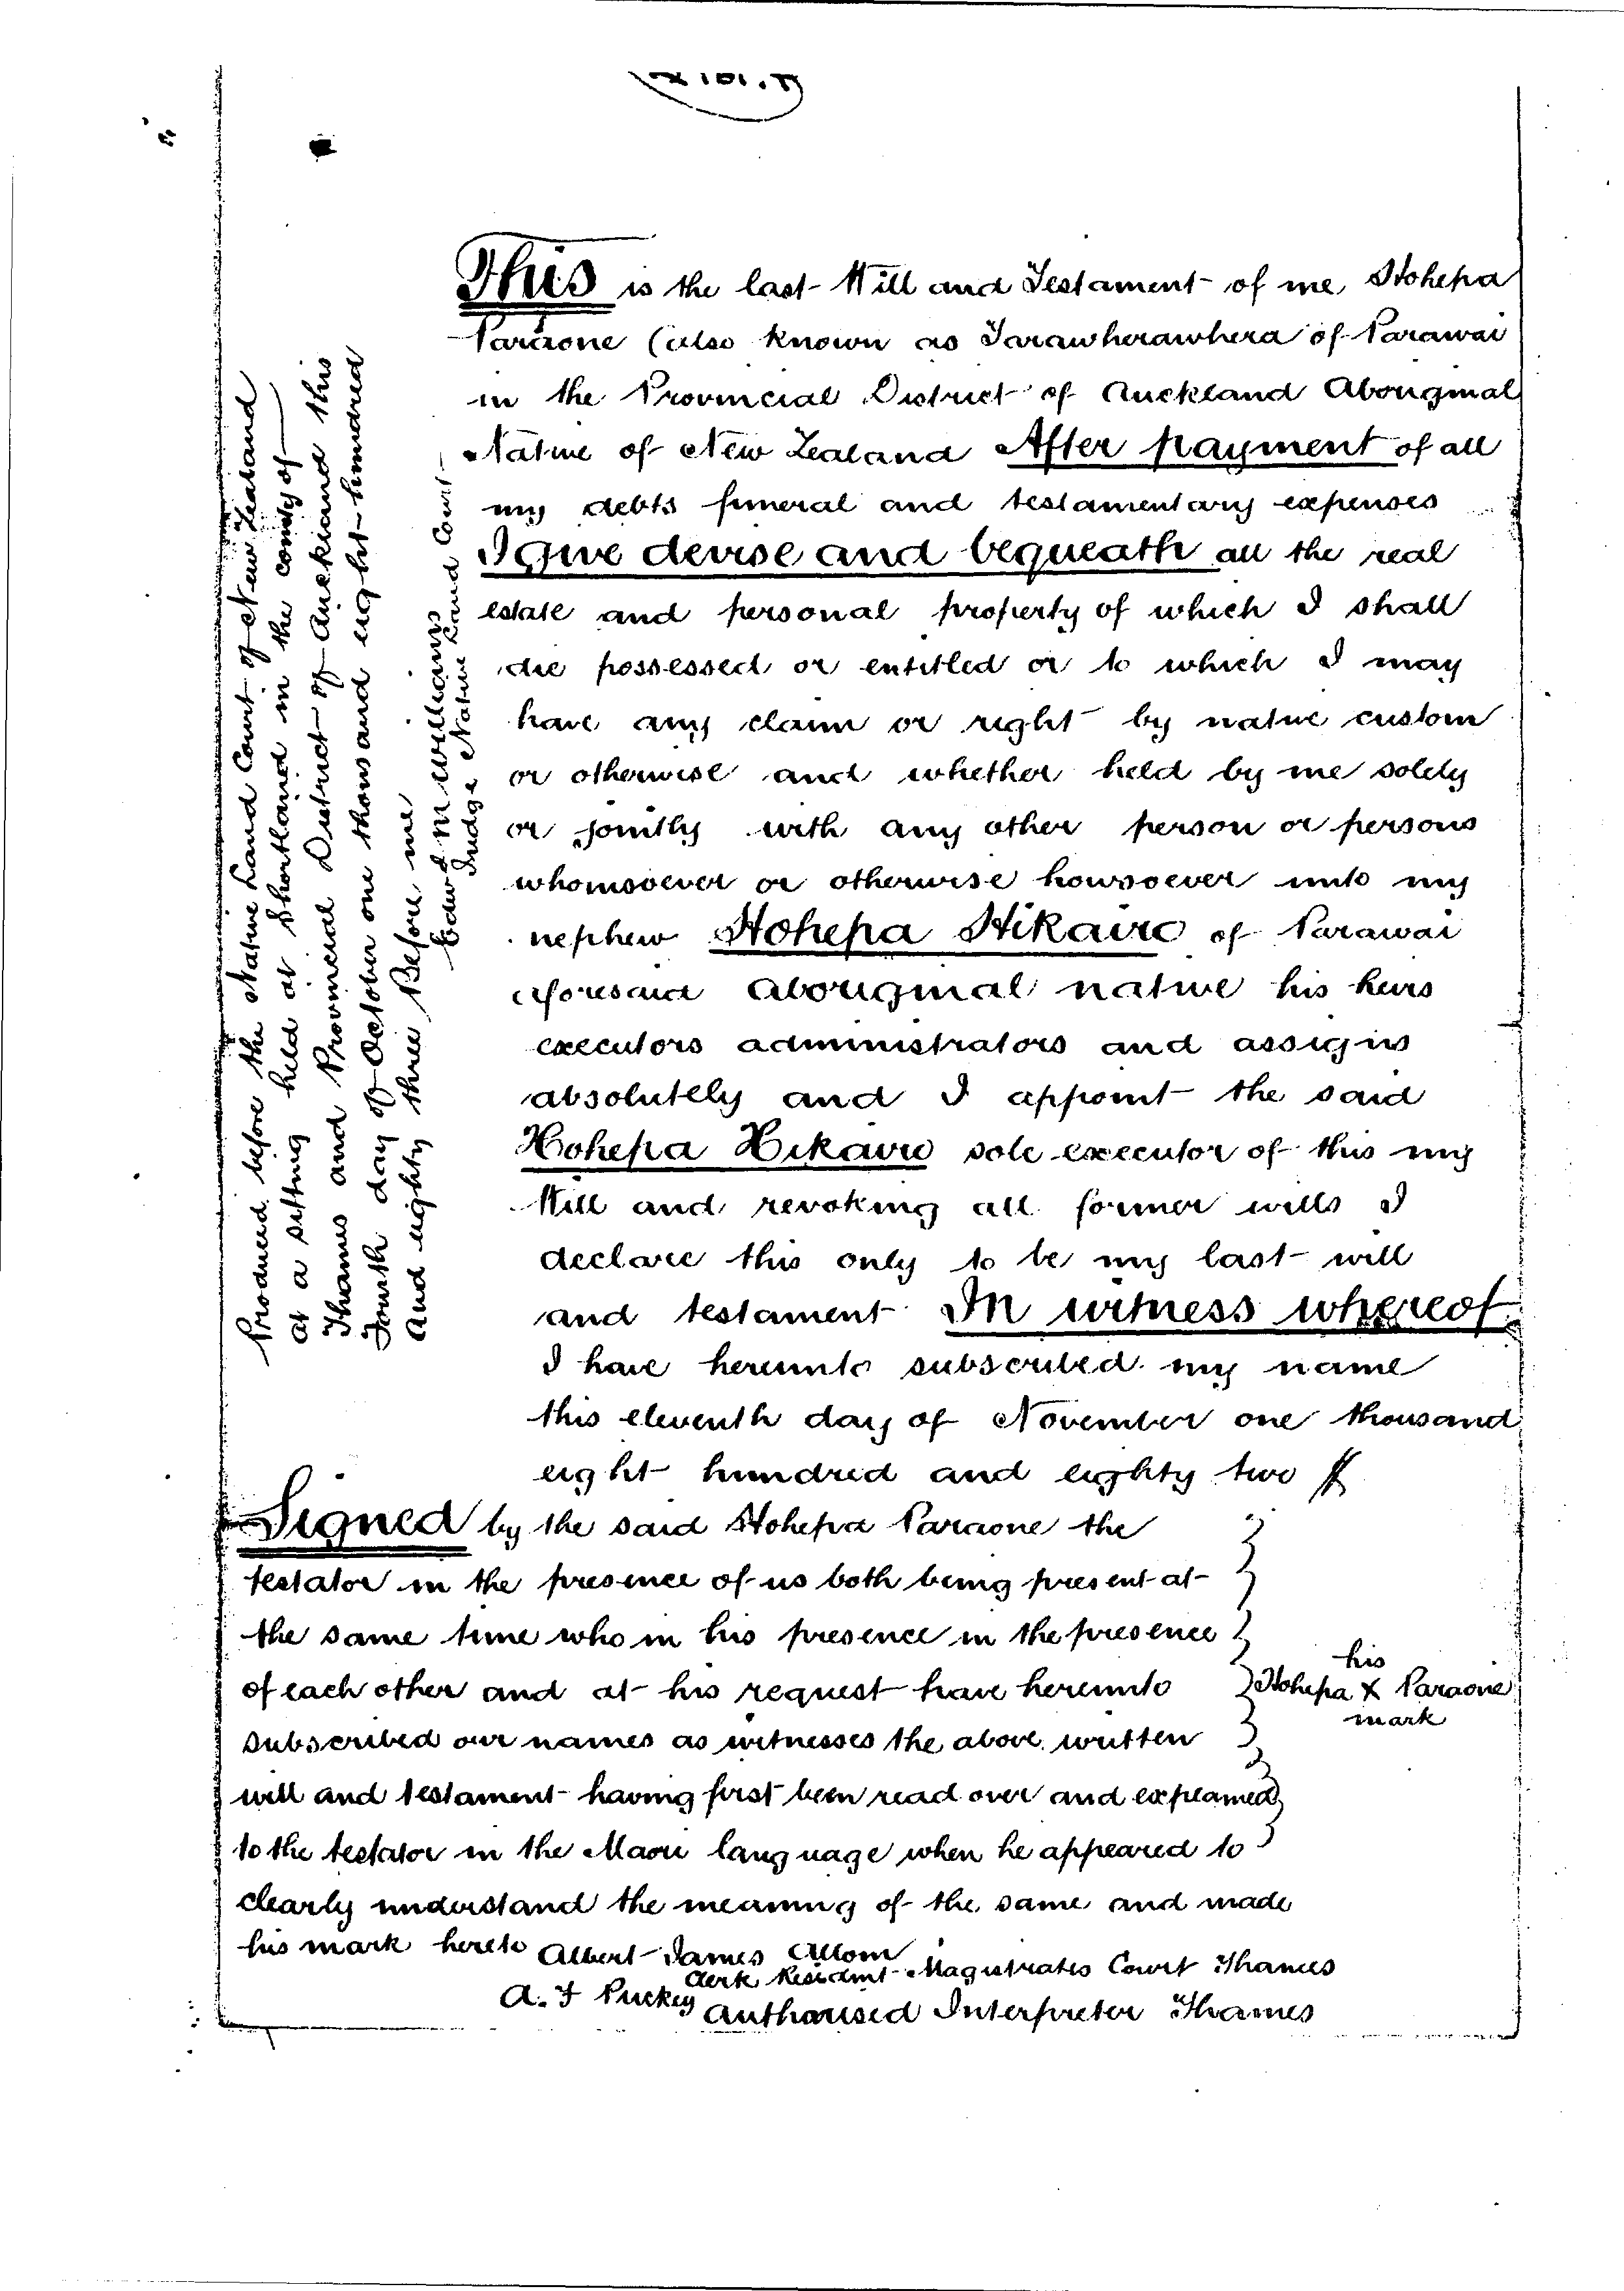 This is the last Will and Testament of me Hohepa
Paraone (also known as Tarawherawhera of Parawai
in the Provincial District of Auckland Aboriginal
Native of New Zealand After payment of all
my debts funeral and testamentary expenses
I give devise and bequeath all the real
estate and personal property of which I shall
die possessed or entitled or to which I may
have any claim or right by native custom
or otherwise and whether held by me solely
or jointly with any other person or persons
whomsoever or otherwise howsoever unto my
nephew Hohepa Hikairo of Parawai
aforesaid aboriginal native his heirs
executors administrators and assigns
absolutely and I appoint the said
Hohepa Hikairo sole executor of this my
Will and revoking all former wills I
declare this only to be my last will
and testament In witness whereof
I have hereunto subscribed my name
this eleventh day of November one thousand
eight hundred and eighty two
Signed by the said Hohepa Paraone the
testator in the presence of us both being present at
the same time who in his presence in the presence
of each other and at his request have hereunto
subscribed our names as witnesses the above written
will and testament having first been read over and explained
to the testator in the Maori language when he appeared to
clearly understand the meaning of the same and made
his mark hereto
his
Hohepa X Paraone
mark
Albert James Allom
Clerk Resident Magistrates Court Thames
A. F Puckey
Authorised Interpreter Thames
Produced before the Native Land Court of New Zealand
at a sitting held at Shortland in the county of
Thames and Provincial District of Auckland this
Fourth day of October one thousand eight hundred
and eighty three Before me
Edwd M Williams
Judge Native Land Court